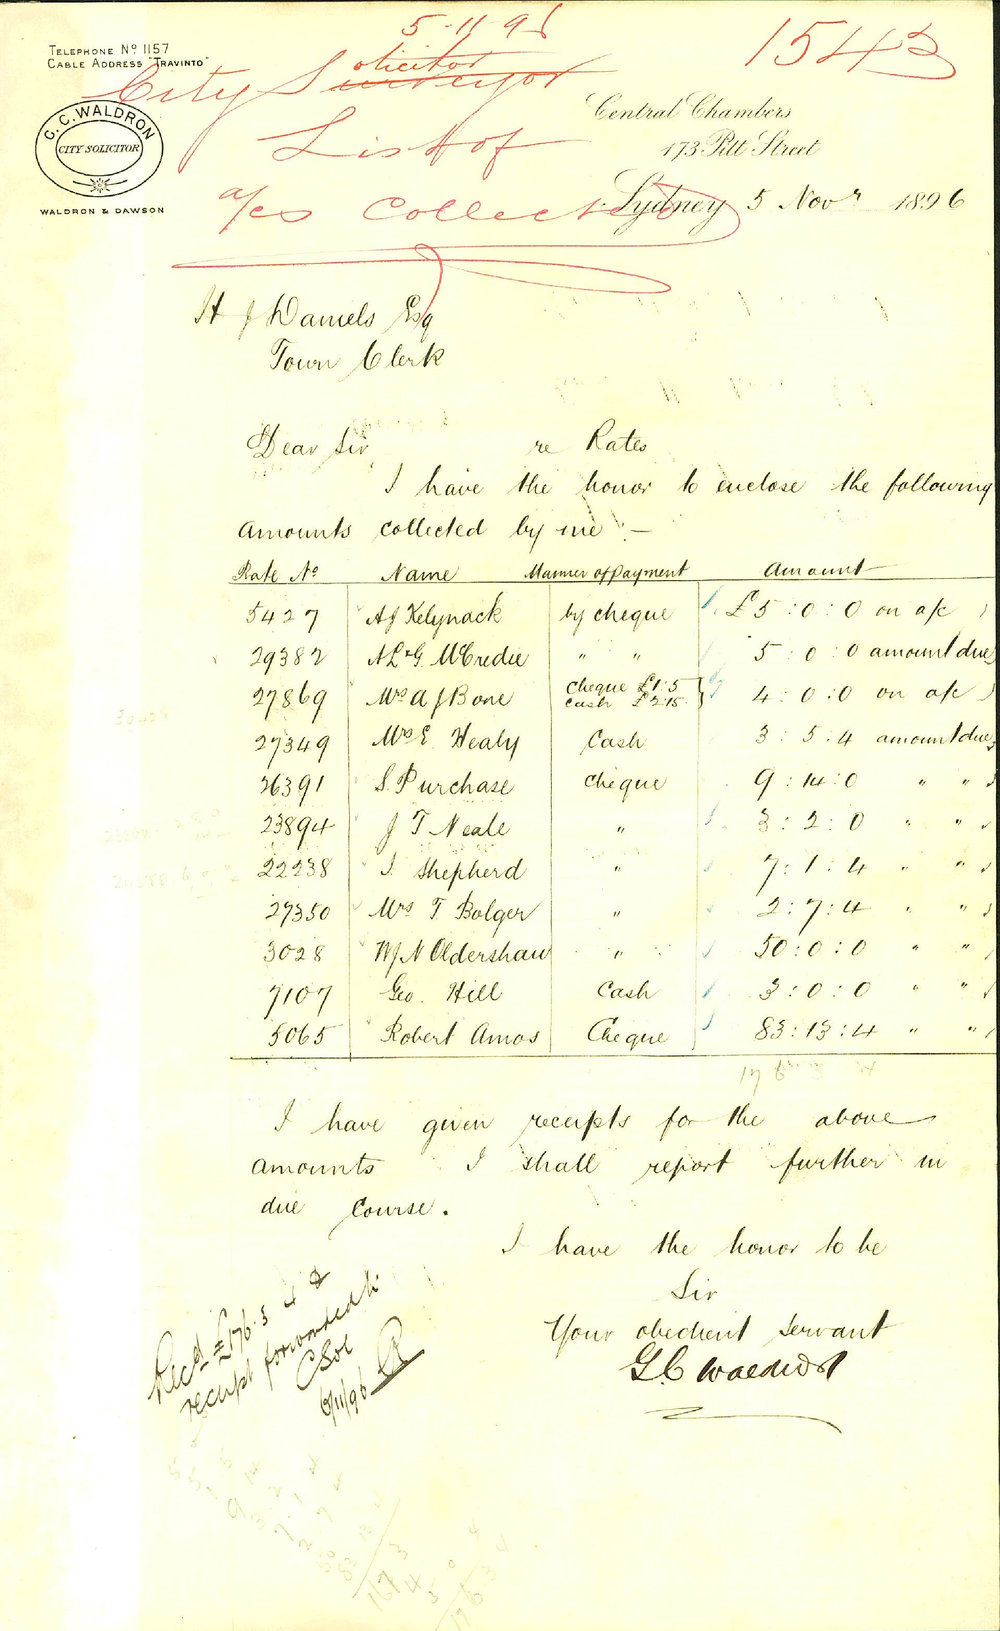 5-11-96
1543
TELEPHONE No 1157
CABLE ADDRESS "TRAVINTO"
City Surveyor olicitor
List of
a/cs Collected
G. C. WALDRON
CITY SOLICITOR
WALDRON & DAWSON
Central Chambers
173 Pitt Street
Sydney 5 Novr 1896
H J Daniels Esq
Town Clerk
Dear Sir re Rates
I have the honor to enclose the following
amounts collected by me :-
Rate No Name Manner of Payment Amount
5427 A J Kelynack by cheque £5 : 0 : 0 on a/c
29382 A L & G McCredie " " 5 : 0 : 0 amount due
27869 Mrs A J Bone Cheque £1.5 Cash £2.15 } 4 : 0 : 0 on a/c
27349 Mrs E. Healy Cash 3 : 5 : 4 amount due
26391 S. Purchase Cheque 9 : 14 : 0 " "
23894 J T Neale " 3 : 2 : 0 " "
22238 I. Shepherd " 7 : 1 : 4 " "
27350 Mrs T Bolger " 2 : 7 : 4 " "
3028 W N Oldershaw " 50 : 0 : 0 " "
7107 Geo. Hill Cash 3 : 0 : 0 " "
5065 Robert Amos Cheque 83 : 13 : 4 " "
176 3 4
I have given receipts for the above
amounts I shall report further in
due course.
I have the honor to be
Sir
Your obedient servant
G. C Waldron
Recd £176.3.4 &
receipt forwarded to
C Sol
6/11/96